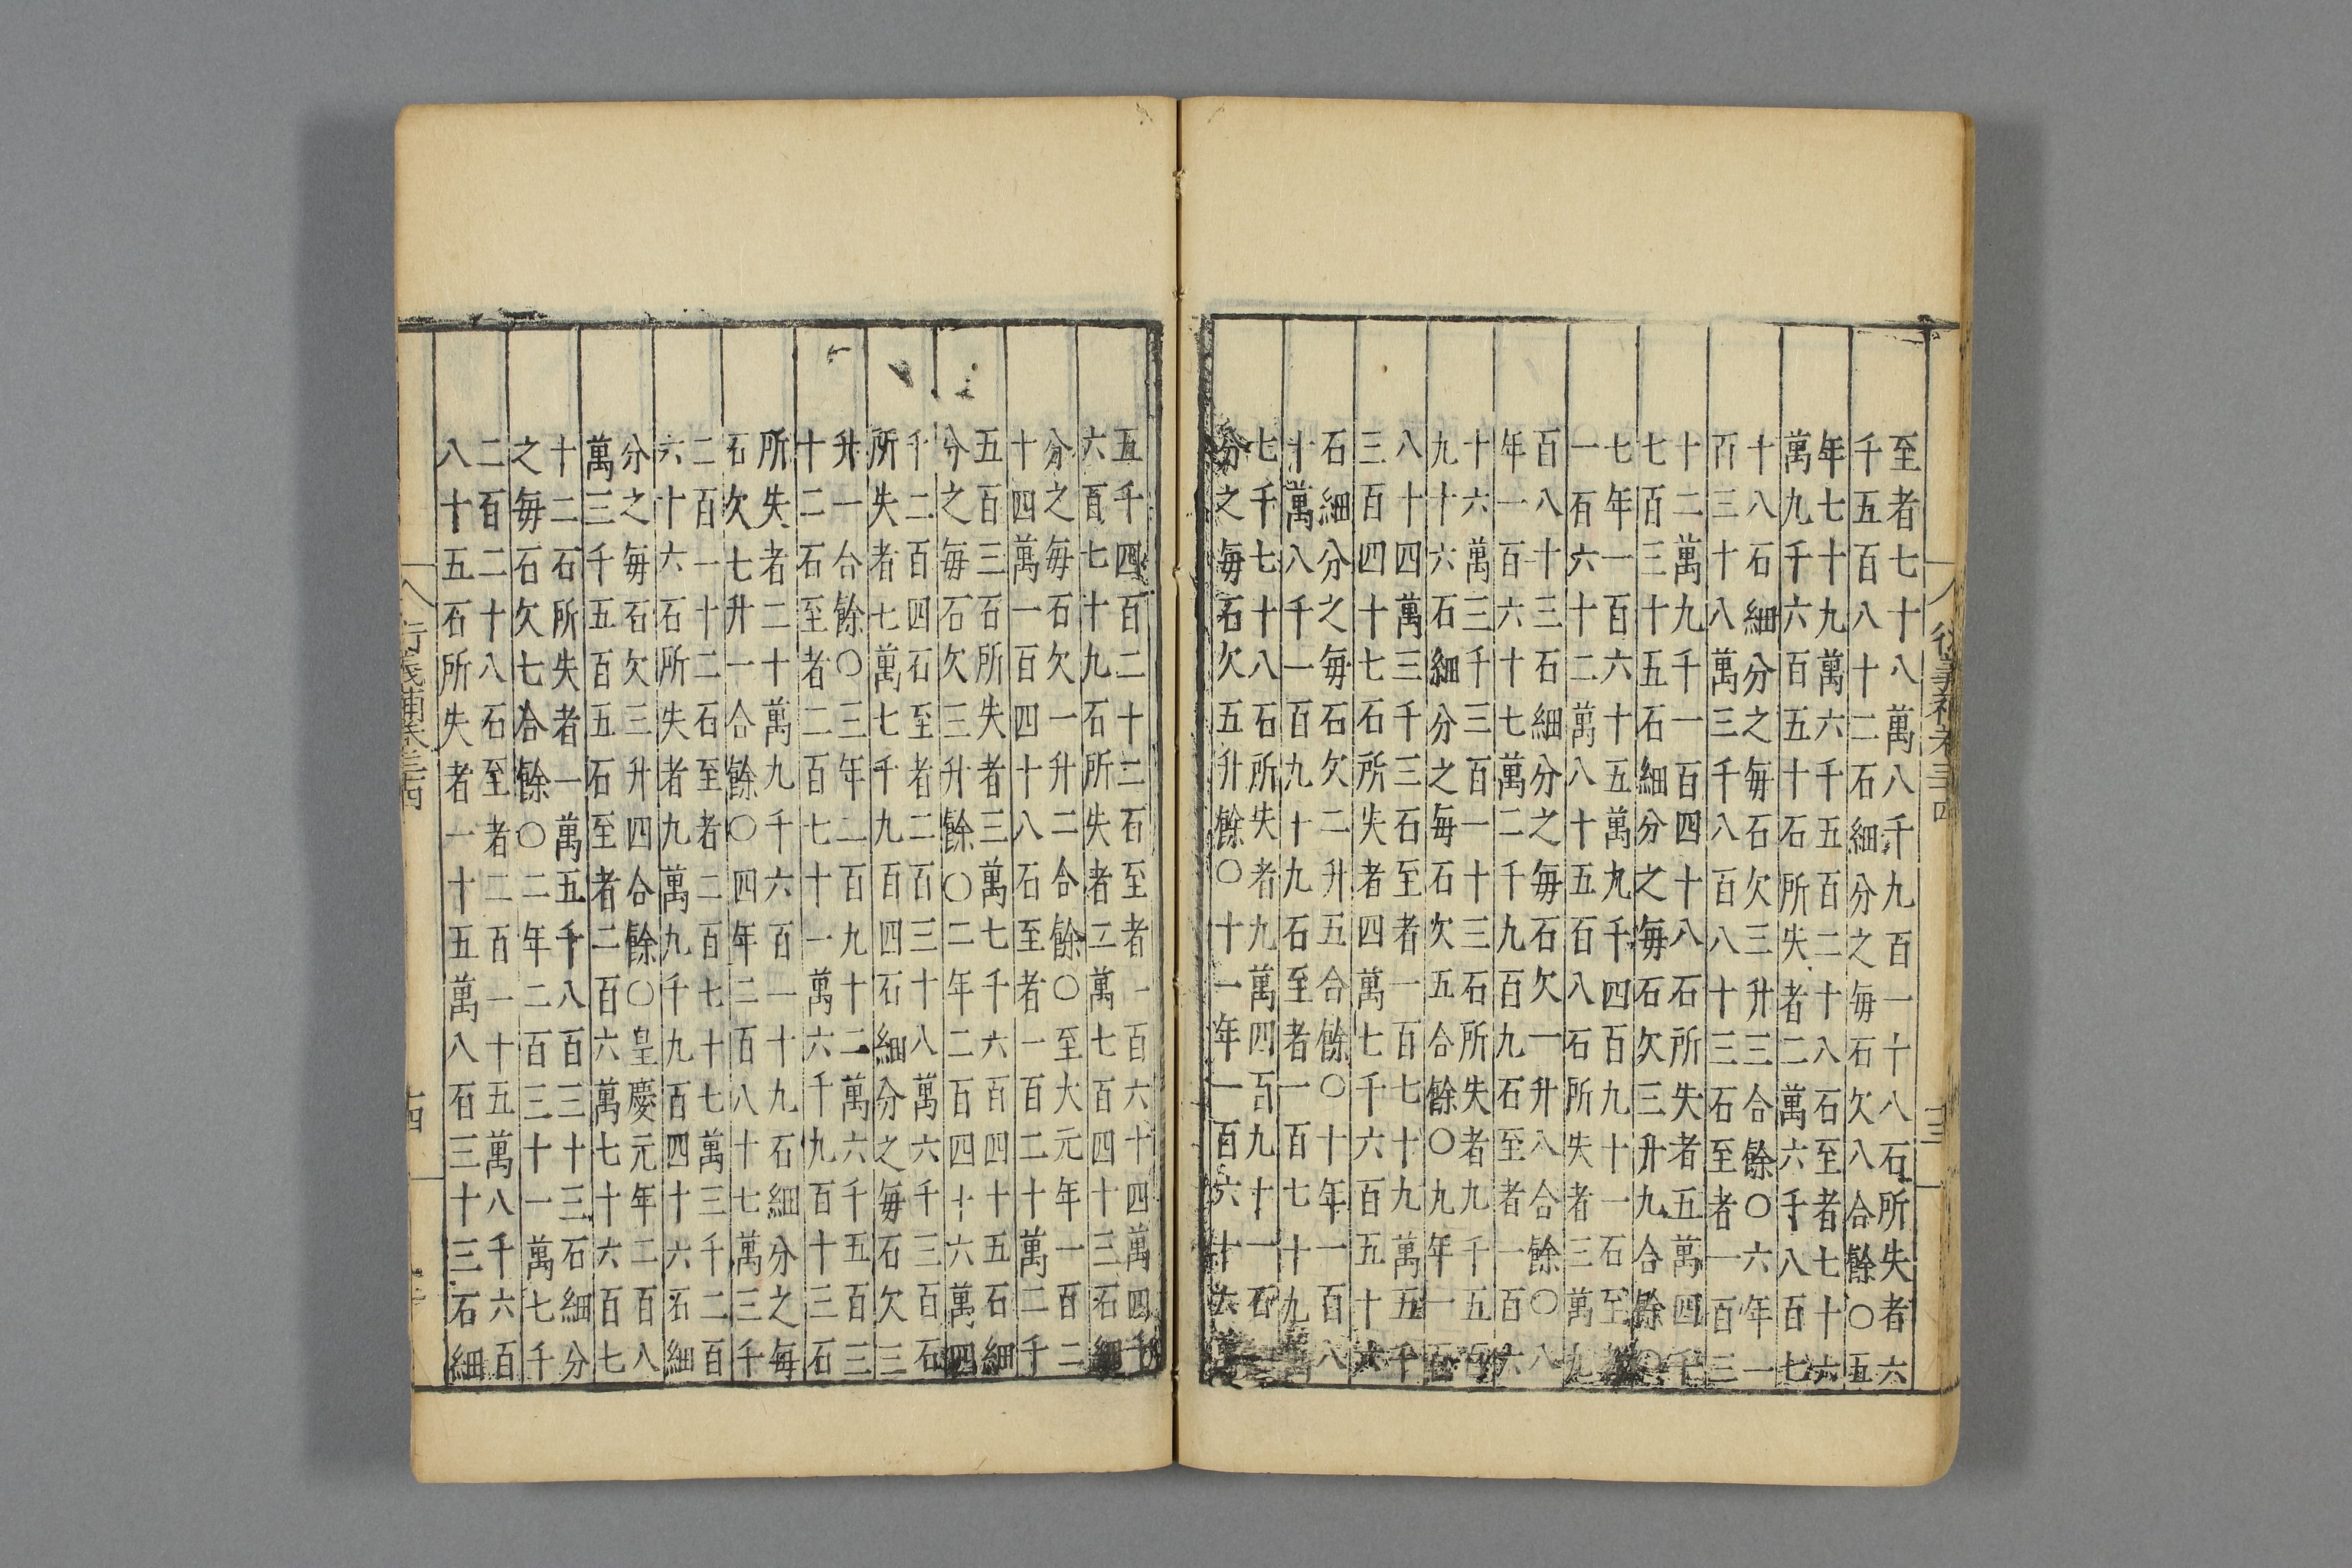 至者七十八萬八千九百一十八石所失者六
千五百八十二石細分之每石欠八合餘〇五
年七十九萬六千五百二十八石至者七十六
萬九千六百五十石所失者二萬六千八百七
十八石細分之每石欠三升三合餘〇六年一
百三十八萬三千八百八十三石至者一百三
十二萬九千一百四十八石所失者五萬四千
七百三十五石細分之每石欠三升九合餘〇
七年一百六十五萬九千四百九十一石至
一石六十二萬八十五石八石所失者三萬九
百八十三石細分之每石欠一升八合餘〇八
年一百六十七萬二千九百九石至者一百六
十六萬三千三百一十三石所失者九千五百
九十六石細分之每石欠五合餘〇九年一百
八十四萬三千三石至者一百七十九萬五千
三百四十七石所失者四萬七千六百五十六
石細分之每石欠二升五合餘〇十年一百八
十萬八千一百九十九石至者一百七十九
七千七十八石所失者九萬四百九十一石
分之每石欠五升餘〇十一年一百六十六
五千四百二十二石至者一百六十四萬四千
六百七十九石所失者二萬七百四十三石細
分之每石欠一升二合餘〇至大元年一百二
十四萬一百四十八石至者一百二十萬二千
五百三石所失者三萬七千六百四十五石細
分之每石欠三升餘〇二年二百四十六萬四
千二百四石至者二百三十八萬六千三百石
所失者七萬七千九百四石細分之每石欠三
升一合餘〇三年二百九十二萬六千五百三
十二石至者二百七十一萬六千九百十三石
所失者二十萬九千六百一十九石細分之每
石欠七升一合餘〇四年二百八十七萬三千
二百一十二石至者二百七十七萬三千二百
六十六石所失者九萬九千九百四十六石細
分之每石欠三升四合餘〇皇慶元年二百八
萬三千五百五石至者二百六萬七十六百七
十二石所失者一萬五千八百三十三石細分
之每石欠七合餘〇二年二百三十一萬七千
二百二十八石至者二百一十五萬八千六百
八十五石所失者一十五萬八石三十三石細